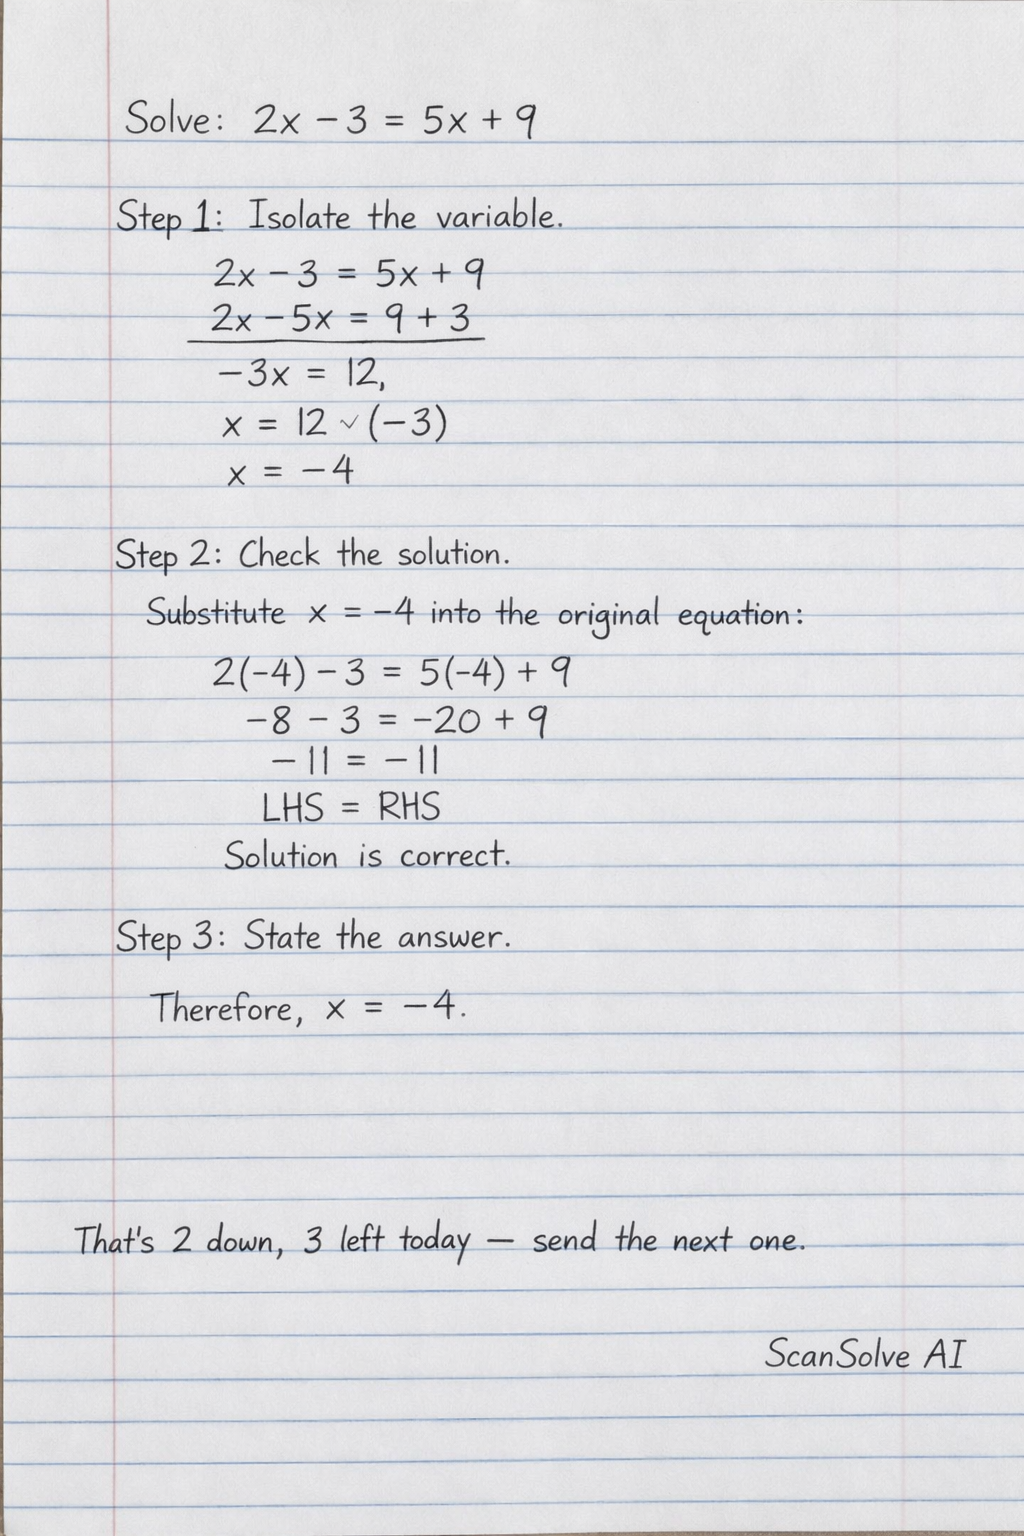 Solve: 2x − 3 = 5x + 9
Step 1: Isolate the variable.
2x − 3 = 5x + 9
2x − 5x = 9 + 3
−3x = 12,
x = 12 ✓ (−3)
x = −4
Step 2: Check the solution.
Substitute x = −4 into the original equation:
2(−4) − 3 = 5(−4) + 9
−8 − 3 = −20 + 9
−11 = −11
LHS = RHS
Solution is correct.
Step 3: State the answer.
Therefore, x = −4.
That's 2 down, 3 left today — send the next one.
ScanSolve AI